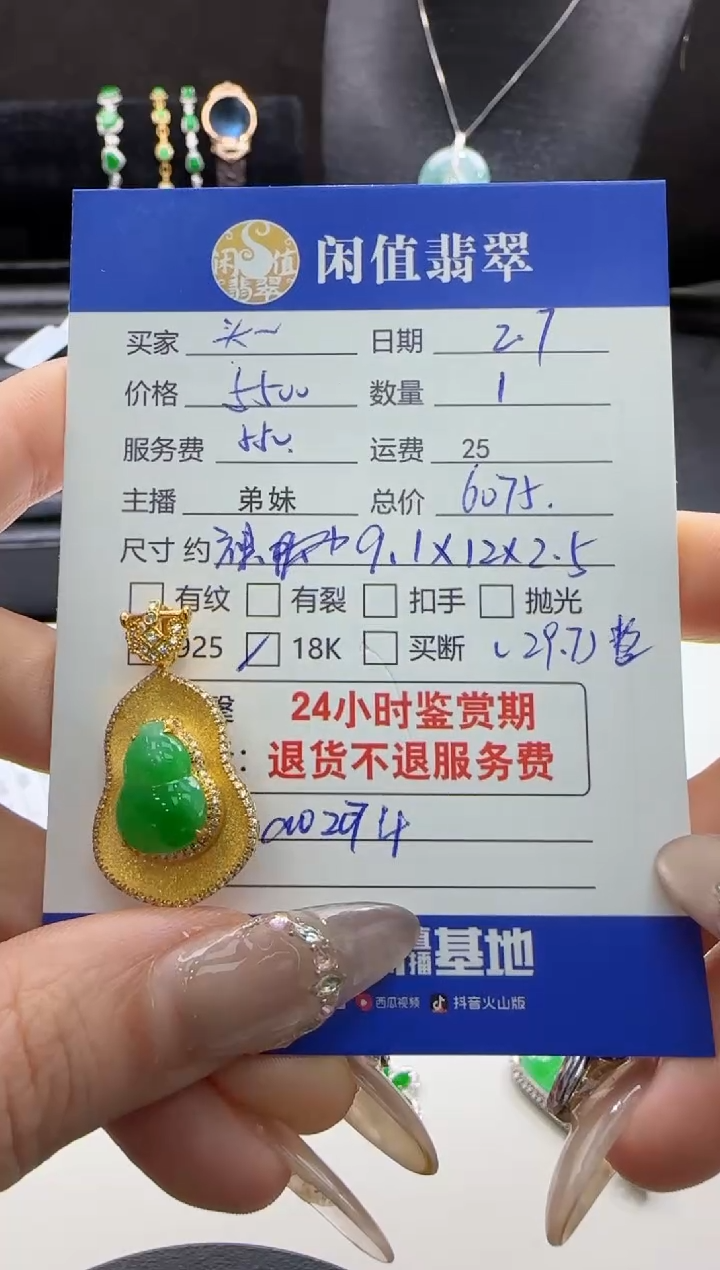 闲值翡翠
闲值翡翠
买家 头一 日期 2.7
价格 5500 数量 1
服务费 550. 运费 25
主播 弟妹 总价 6075.
尺寸 约 9.1X12X2.5
有纹 有裂 扣手 抛光
925 18K 买断 (29.7) 整
24小时鉴赏期
: 退货不退服务费
直播基地
西瓜视频 抖音火山版